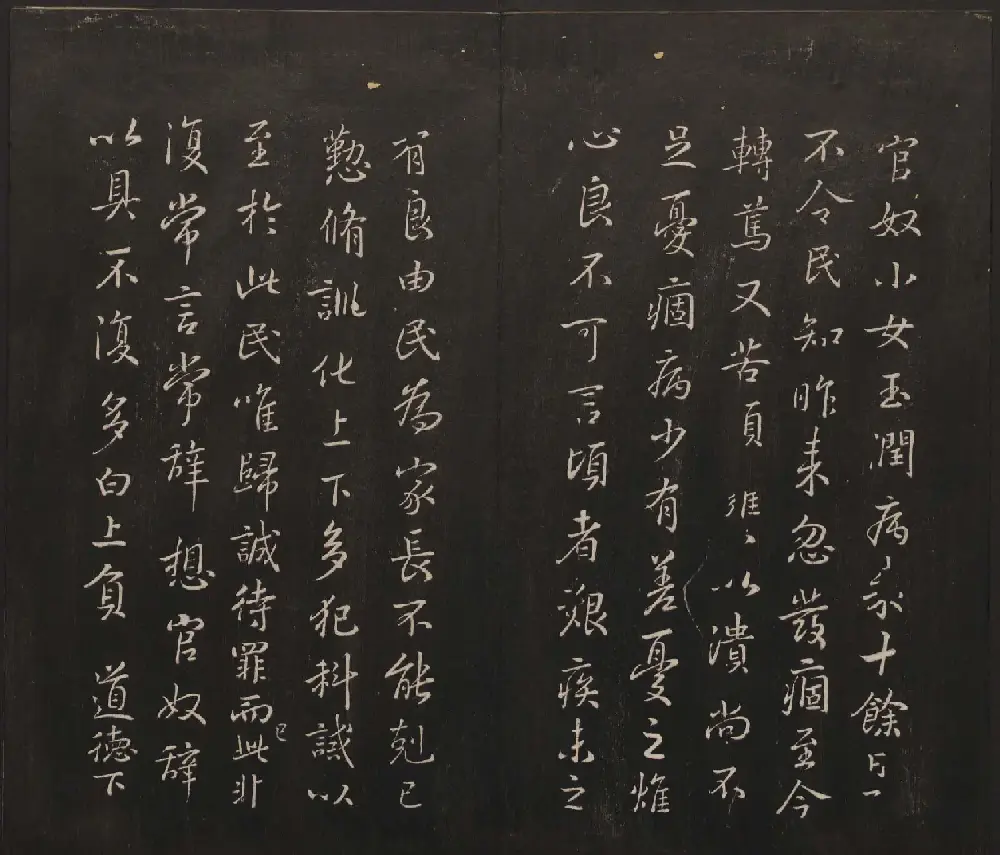 官奴小女玉潤病來十餘日了
不令民知昨來忽發痼至今
轉篤又苦頭癰〻以潰尚不
足憂痼病少有差憂之燋
心良不可言頃者艱疾未之
有良由民為家長不能剋己
懃脩訓化上下多犯科誡以
至於此民唯歸誠待罪而已此非
復常言常辭想官奴辭
以具不復多白上負道德下